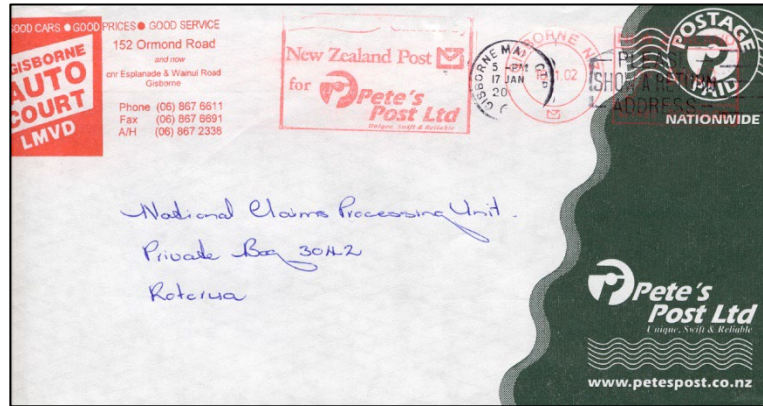 GOOD CARS ● GOOD PRICES ● GOOD SERVICE
GISBORNE
AUTO
COURT
LMVD
152 Ormond Road
and now
cnr Esplanade & Wainui Road
Gisborne
Phone (06) 867 6611
Fax (06) 867 6691
A/H (06) 867 2338
New Zealand Post
for Pete's
Post Ltd
Unique, Swift & Reliable
GISBORNE MAIL
5 - PM
17 JAN
20
GISBORNE N
1.02
PLEASE
SHOW A RETURN
ADDRESS
POSTAGE
PAID
NATIONWIDE
National Claims Processing Unit.
Private Bag 3042
Rotorua
Pete's
Post Ltd
Unique, Swift & Reliable
www.petespost.co.nz